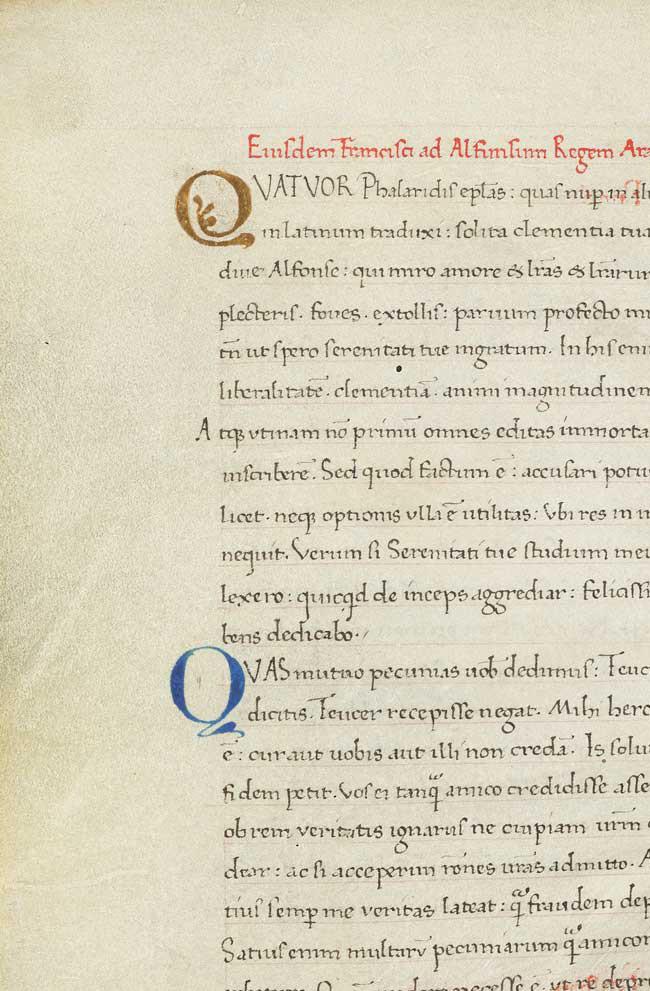 Eiusdem Francisci ad Alfunsum Regem Ara
QVATVOR Phalaridis epl̄as: quas nup̱ in ali
in latinum traduxi: solita clementia tua
diue Alfonse: qui miro amore & lr̄as & lr̄arum
plecteris. foues. extollis: paruum profecto mu
tn̄ ut spero serenitati tue ingratum. In his eni
liberalitatē. clementiā. animi magnitudinem
Atqꝫ vtinam nō primū omnes editas immorta
inscriberē. Sed quod factum ē: accusari potu
licet. neqꝫ optionis ulla ē utilitas: Vbi res in
nequit. Verum si Serenitati tue studium meu
lexero: quicq̇d de inceps aggrediar: felicissi
bens dedicabo.
QVAS mutuo pecunias uob̄ dedimus: Teuc
dicitis. Teucer recepisse negat. Mihi herc
ē: cur aut uobis aut illi non credā. Is solu
fidem petit. Vos ei tanq̄ amico credidisse asse
ob rem veritatis ignarus ne cuipiam urm̄
dear: ac si acceperim rōnes ur̄as admitto. A
tius semp̱ me veritas lateat: q̄ fraudem dep
Satius enim multarū pecuniarum q̄ amicor
necesse ē. vt re depre